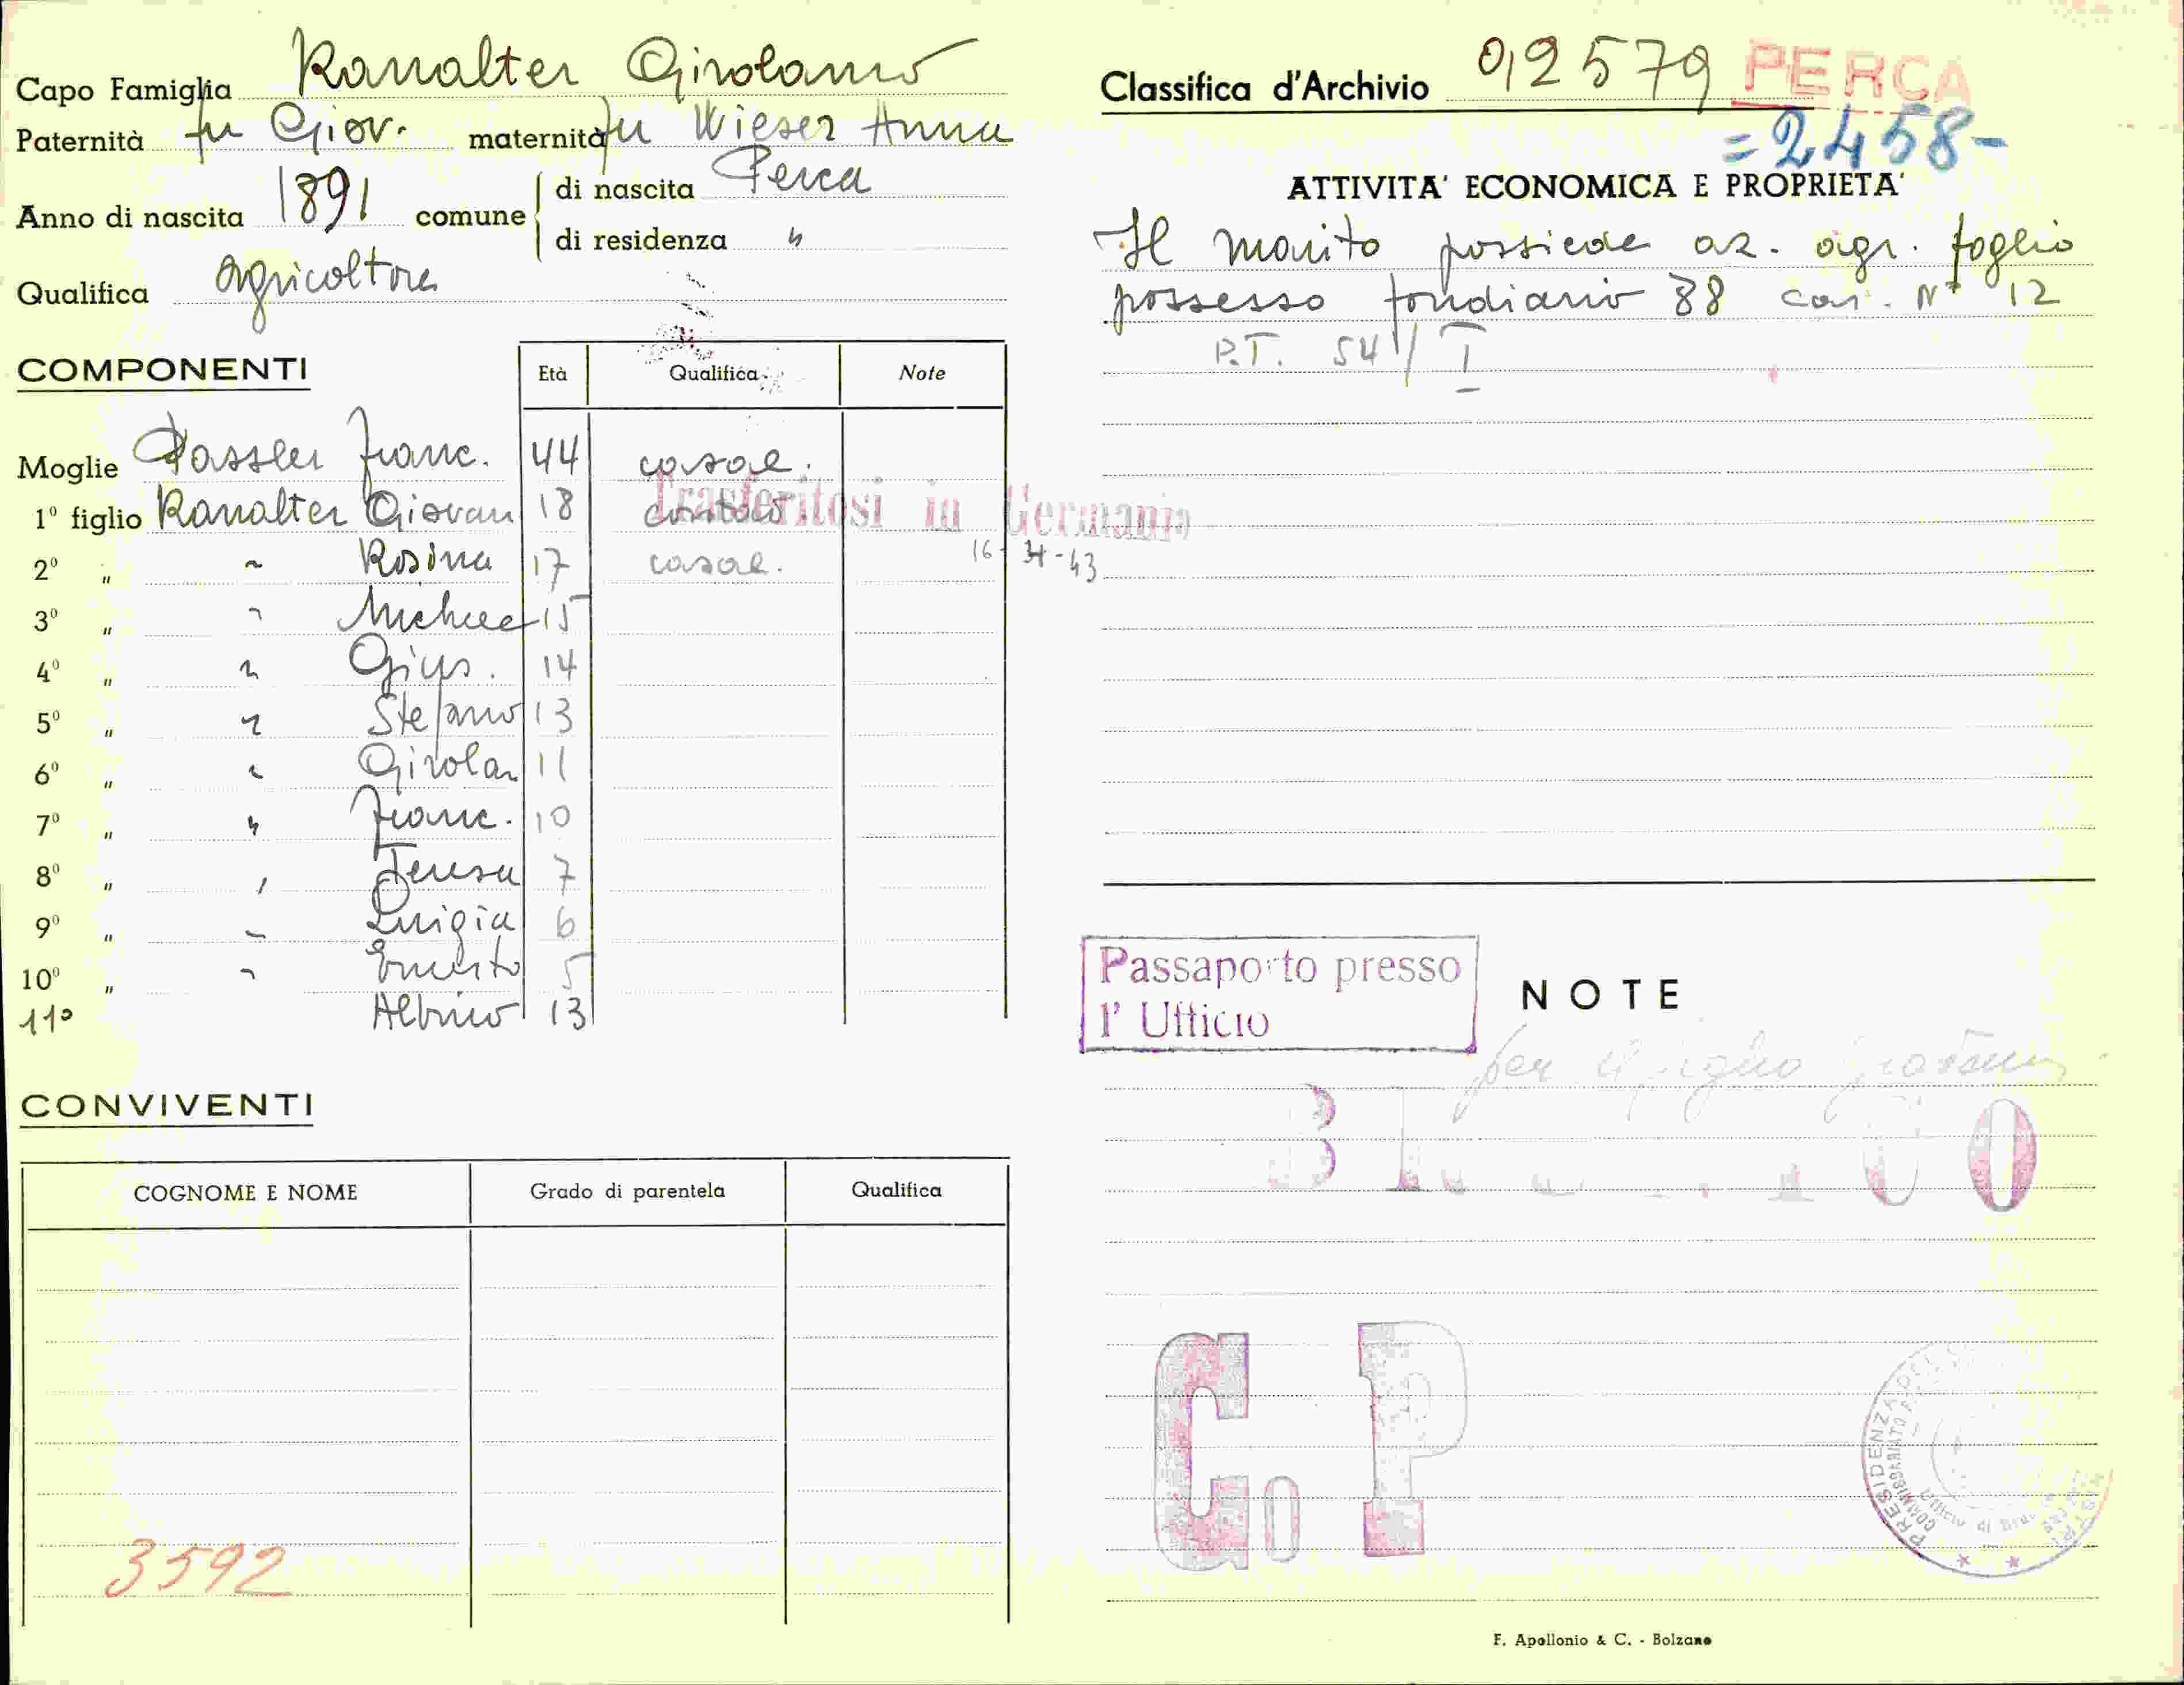 Capo Famiglia Kanalter Girolamo
Paternità fu Giov. maternità fu Wieser Anna
Anno di nascita 1891 comune di nascita Perca
di residenza "
Qualifica agricoltore
COMPONENTI
Età Qualifica Note
Moglie Passler Franc. 44 casal.
1º figlio Kanalter Giovan 18
Trasferitosi in Germania
2º " " Rosina 17 casal.
16-4-43
3º " " Michele 15
4º " " Gius. 14
5º " " Stefano 13
6º " " Girolam 11
7º " " Franc. 10
8º " " Teresa 7
9º " " Luigia 6
10º " " Ernesto 5
11º Albino 13
CONVIVENTI
COGNOME E NOME Grado di parentela Qualifica
3592
Classifica d'Archivio 0,2579 PERCA
=2458-
ATTIVITA' ECONOMICA E PROPRIETA'
Il marito possiede az. agr. foglio
possesso fondiario 88 cas. Nº 12
P.T. 54/I
Passaporto presso
l'Ufficio
NOTE
per il figlio Giovanni
C. P
PRESIDENZA DEL
COMMISSARIATO
Ufficio di
F. Apollonio & C. - Bolzano